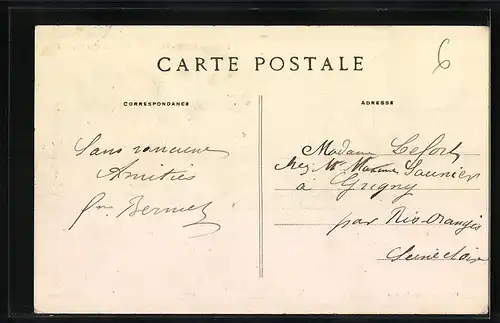 6
CARTE POSTALE
CORRESPONDANCE
ADRESSE
Sans rancune
Amitiés
Bermel
Madame Lefort
chez Mr Maxime Saunier
à Grigny
par Ris Orangis
Seine et Oise